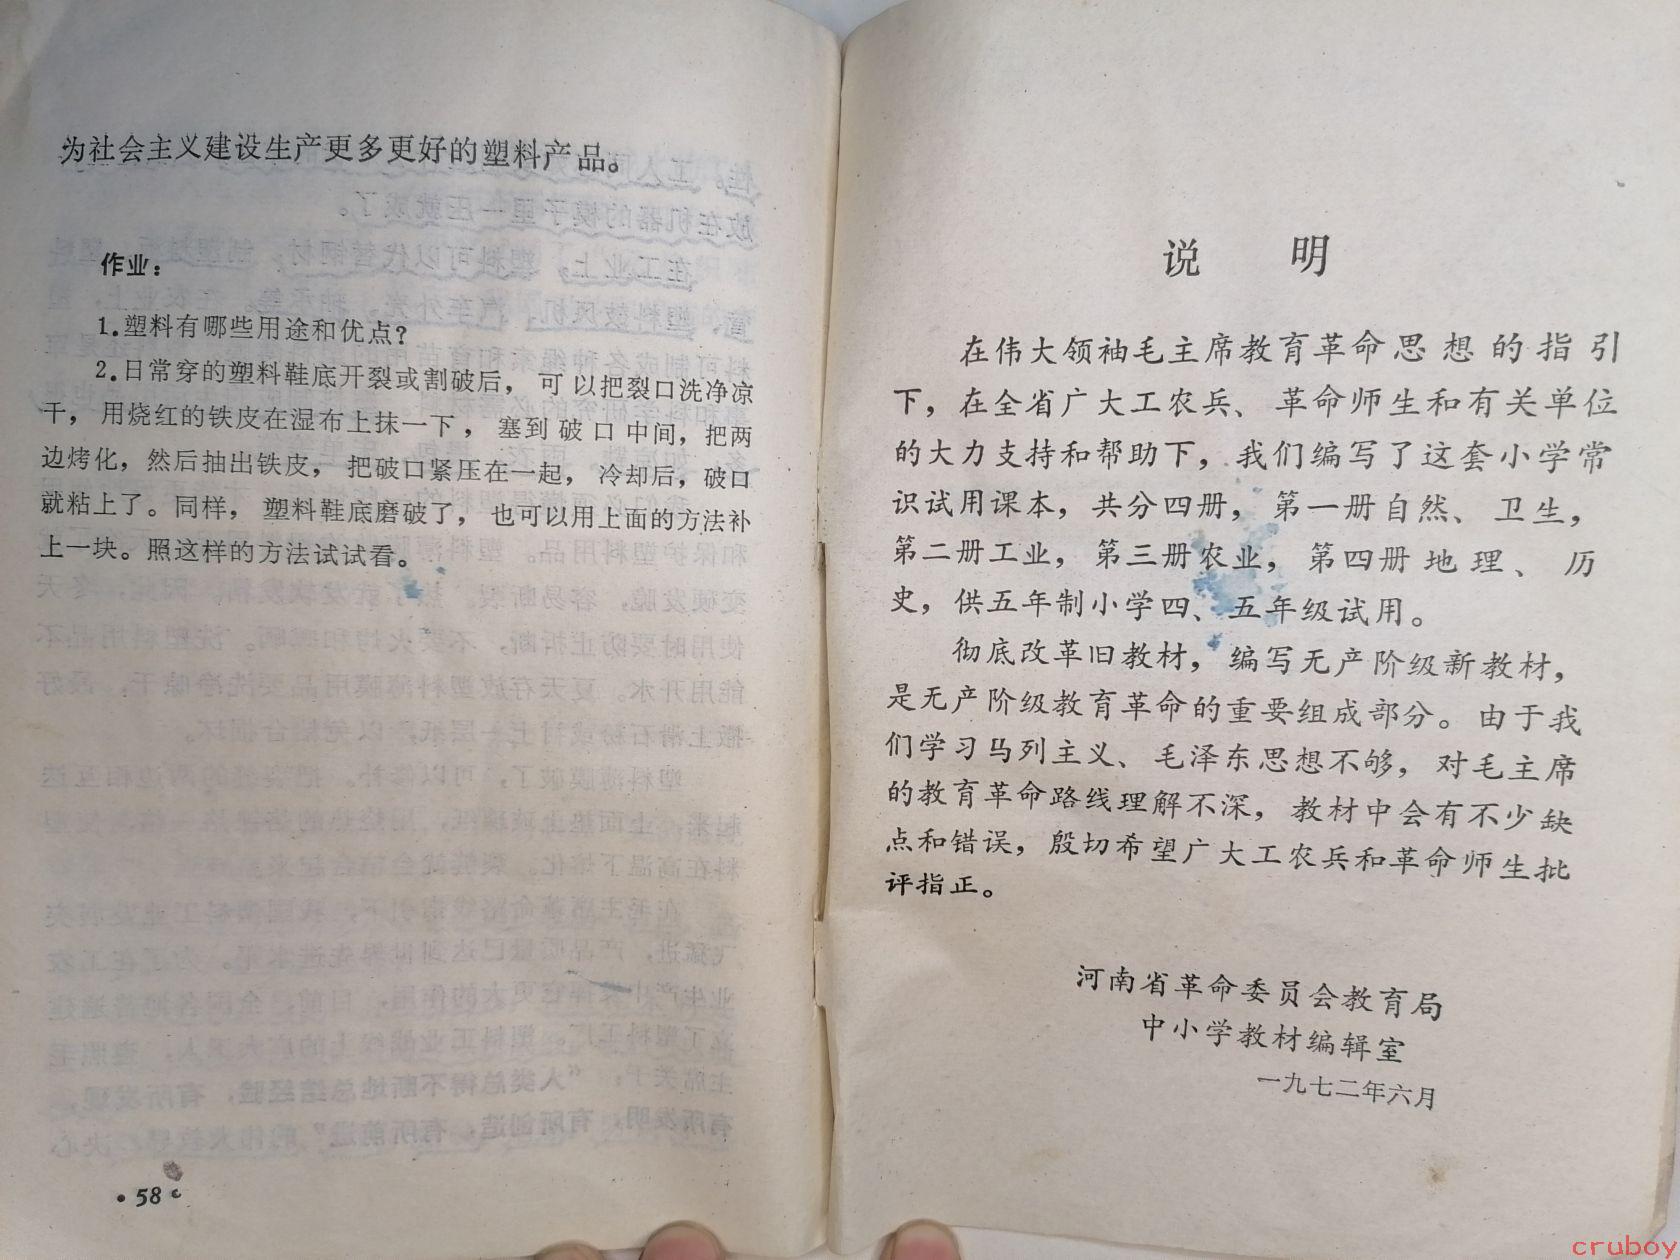 为社会主义建设生产更多更好的塑料产品。
作业：
1.塑料有哪些用途和优点？
2.日常穿的塑料鞋底开裂或割破后，可以把裂口洗净凉
干，用烧红的铁皮在湿布上抹一下，塞到破口中间，把两
边烤化，然后抽出铁皮，把破口紧压在一起，冷却后，破口
就粘上了。同样，塑料鞋底磨破了，也可以用上面的方法补
上一块。照这样的方法试试看。
·58
说 明
在伟大领袖毛主席教育革命思想的指引
下，在全省广大工农兵、革命师生和有关单位
的大力支持和帮助下，我们编写了这套小学常
识试用课本，共分四册，第一册自然、卫生，
第二册工业，第三册农业，第四册地理、历
史，供五年制小学四、五年级试用。
彻底改革旧教材，编写无产阶级新教材，
是无产阶级教育革命的重要组成部分。由于我
们学习马列主义、毛泽东思想不够，对毛主席
的教育革命路线理解不深，教材中会有不少缺
点和错误，殷切希望广大工农兵和革命师生批
评指正。
河南省革命委员会教育局
中小学教材编辑室
一九七二年六月
cruboy